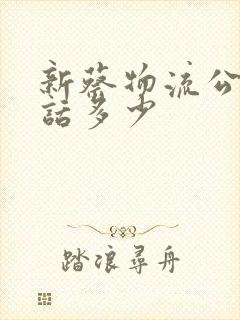 新蔡物流公
話多少
踏浪尋舟